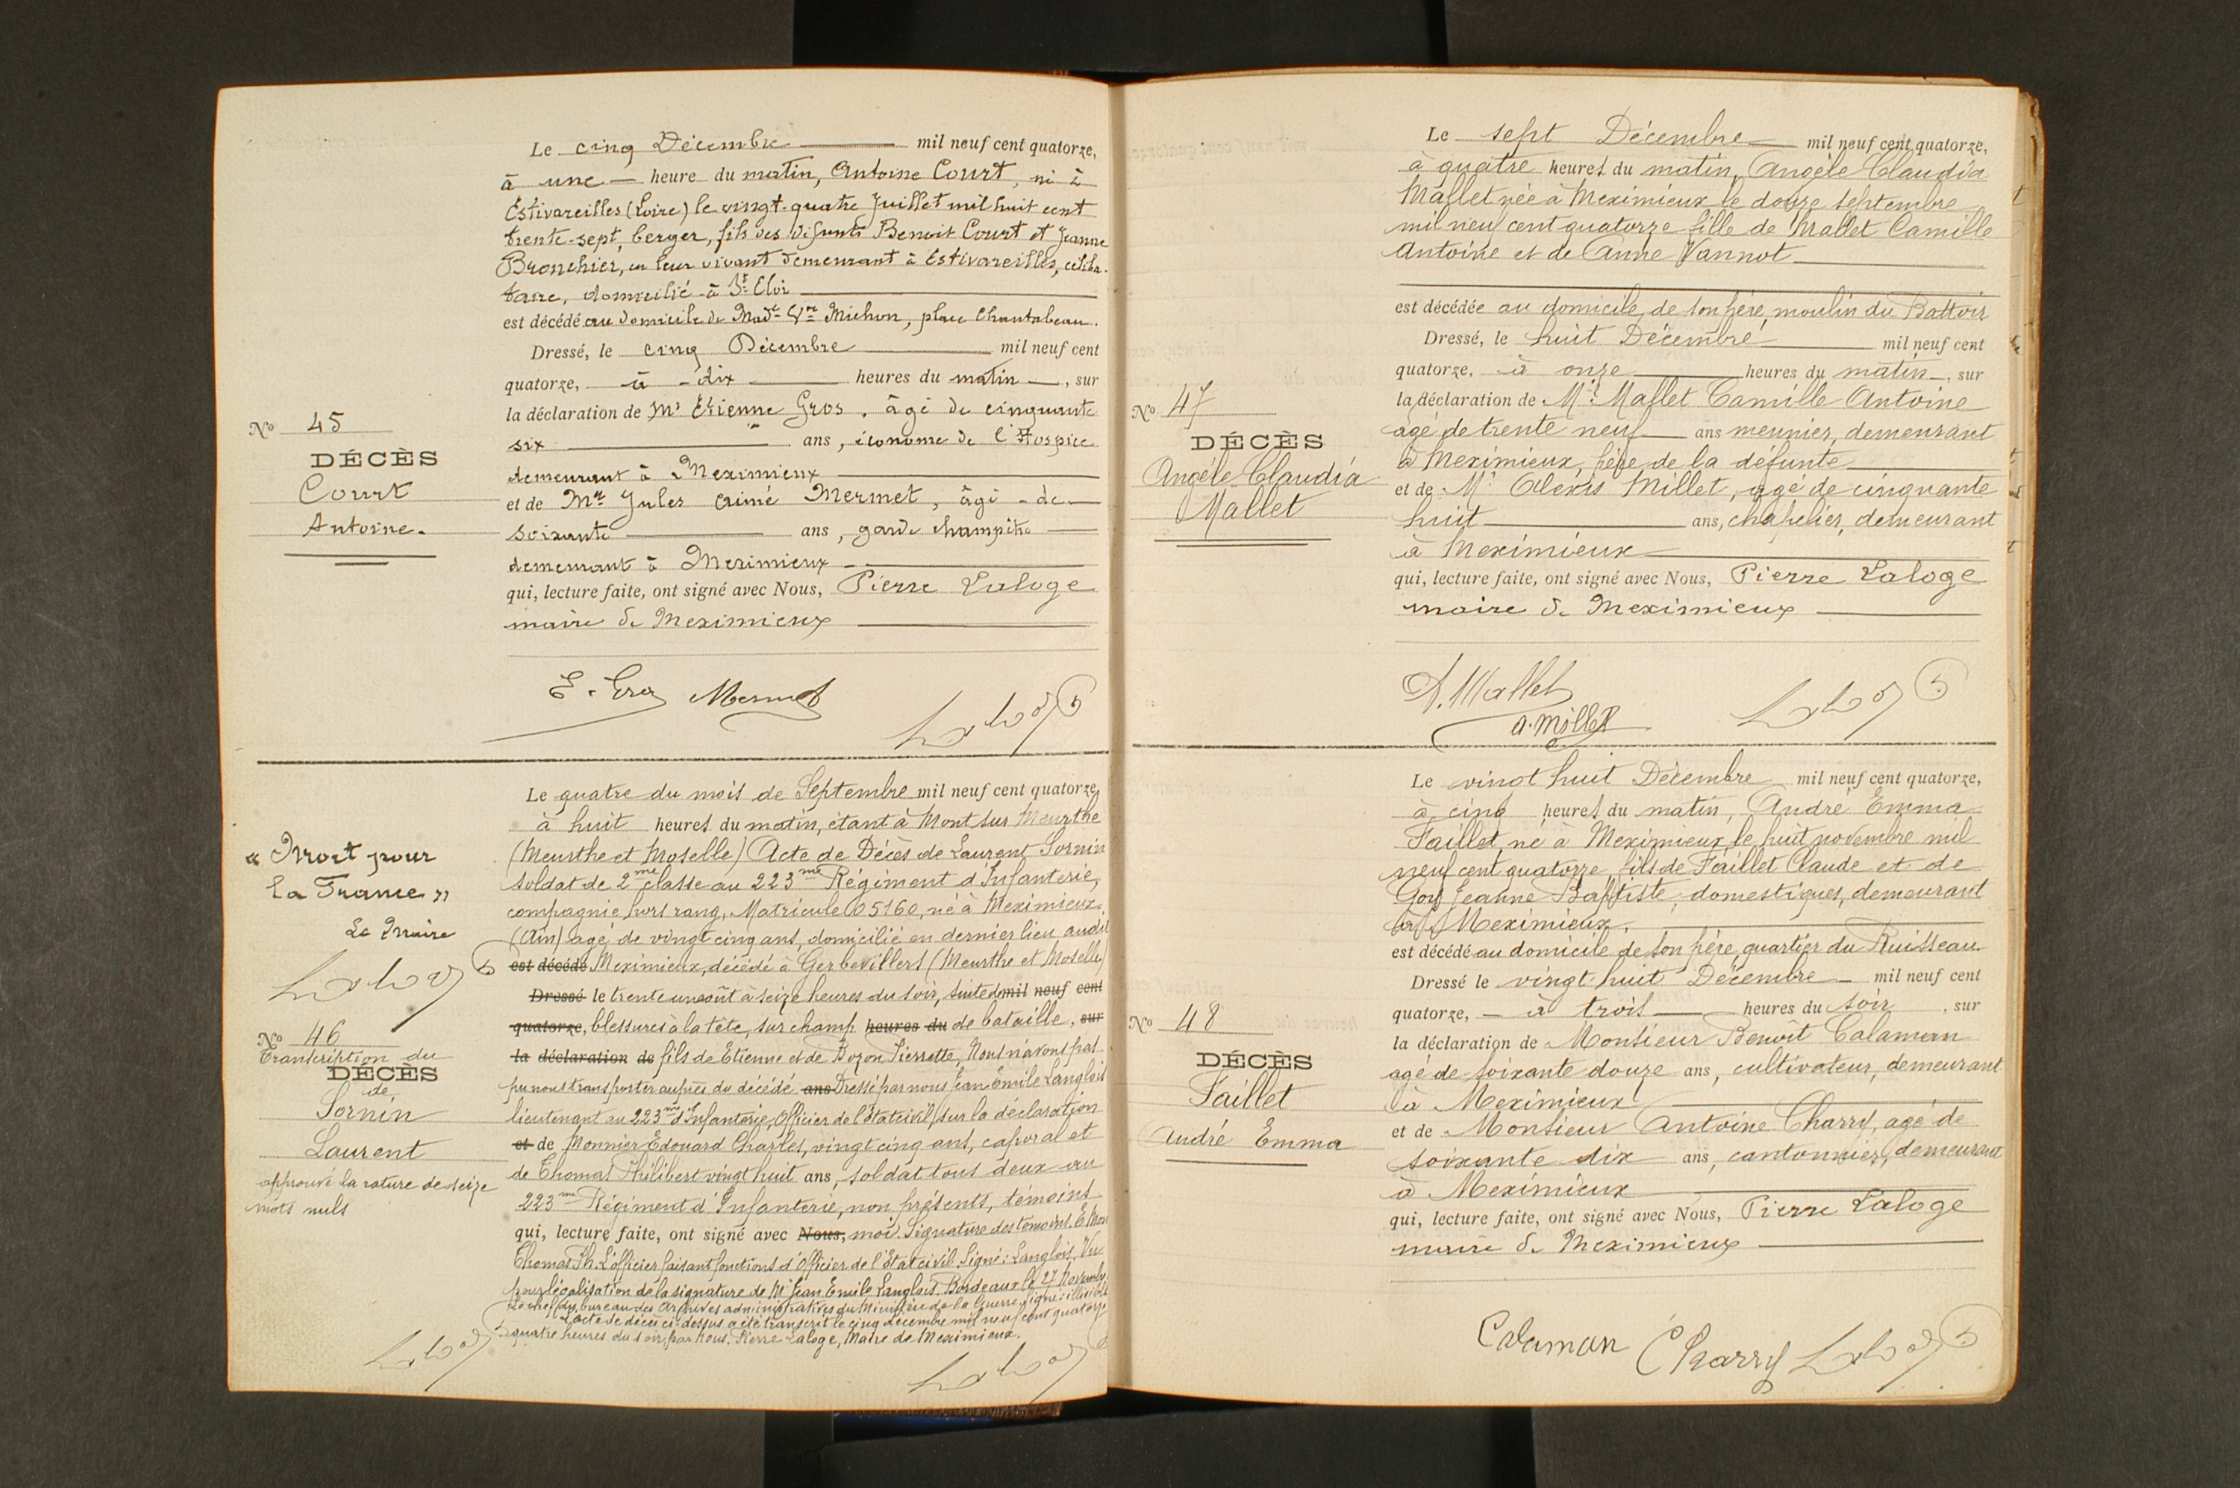 Le cinq Décembre mil neuf cent quatorze,
à une heure du matin, Antoine Court, né à
Estivareilles (Loire) le vingt-quatre Juillet mil huit cent
trente-sept, berger, fils des défunts Benoit Court et Jeanne
Bronchier, en leur vivant demeurant à Estivareilles, céliba-
taire, domicilié à St Eloi
est décédé au domicile de Made Vve Michon, place Chantabeau.
Dressé, le cinq Décembre mil neuf cent
quatorze, à dix heures du matin, sur
la déclaration de Mr Etienne Gros, âgé de cinquante
six ans, économe de l'Hospice
demeurant à Meximieux
et de Mr Jules Aimé Mermet, âgé de
soixante ans, garde champêtre
demeurant à Meximieux
qui, lecture faite, ont signé avec Nous, Pierre Laloge
maire de Meximieux
No 45
DÉCÈS
Court
Antoine.
E. Gros Mermet
Le quatre du mois de Septembre mil neuf cent quatorze,
à huit heures du matin, étant à Mont sur Meurthe
(Meurthe et Moselle) Acte de Décès de Laurent Sornin
soldat de 2me classe au 223me Régiment d'Infanterie,
compagnie hors rang, Matricule 05160, né à Meximieux
(Ain) agé de vingt cinq ans, domicilié en dernier lieu audit
est décédé Meximieux, décédé à Gerbevillers (Meurthe et Moselle)
Dressé le trente un août à seize heures du soir, suite de mil neuf cent
quatorze, blessures à la tête, sur champ heures du de bataille, sur
la déclaration de fils de Etienne et de Bozon Pierrette, Nous n'avons pas
pu nous transporter auprès du décédé ans Dressé par nous Jean Emile Langlois
lieutenant au 223me d'Infanterie, Officier de l'état civil, sur la déclaration
et de Monnier Edouard Charles, vingt cinq ans, caporal et
de Thomas Philibert vingt huit ans, soldat tous deux au
223me Régiment d'Infanterie, non présents, témoins
qui, lecture faite, ont signé avec Nous, moi. Signature des témoins. E. Mon
Thomas Ph. L'officier faisant fonctions d'Officier de l'Etat civil. Signé: Langlois. Vu
pour légalisation de la signature de Mr Jean Emile Langlois. Bordeaux le 27 Novembre
Le chef du bureau des Archives administratives du Ministère de la Guerre signé: illisible
L'acte de décès ci-dessus a été transcrit le cinq décembre mil neuf cent quatorze
quatre heures du soir, par Nous, Pierre Laloge, Maire de Meximieux.
« Mort pour
la France »
Le Maire
No 46
Transcription du
DÉCÈS
de
Sornin
Laurent
approuvé la rature de seize
mots nuls
Le sept Décembre mil neuf cent quatorze,
à quatre heures du matin, Angèle Claudia
Mallet née à Meximieux le douze septembre
mil neuf cent quatorze fille de Mallet Camille
Antoine et de Anne Vannot
est décédée au domicile de son père, moulin du Battoir
Dressé, le huit Décembre mil neuf cent
quatorze, à onze heures du matin, sur
la déclaration de Mr Mallet Camille Antoine
agé de trente neuf ans meunier, demeurant
à Meximieux, père de la défunte
et de Mr Alexis Millet, agé de cinquante
huit ans, chapelier, demeurant
à Meximieux
qui, lecture faite, ont signé avec Nous, Pierre Laloge
maire de Meximieux
No 47
DÉCÈS
Angèle Claudia
Mallet
A. Mallet
A. Millet
Le vingt huit Décembre mil neuf cent quatorze,
à cinq heures du matin, André Emma
Faillet, né à Meximieux le huit novembre mil
neuf cent quatorze fils de Faillet Claude et de
Goy Jeanne Baptiste, domestiques, demeurant
à Meximieux,
est décédé au domicile de son père, quartier du Ruisseau
Dressé le vingt-huit Décembre mil neuf cent
quatorze, à trois heures du soir, sur
la déclaration de Monsieur Benoît Calaman
agé de soixante douze ans, cultivateur, demeurant
à Meximieux
et de Monsieur Antoine Charry, agé de
soixante dix ans, cantonnier, demeurant
à Meximieux
qui, lecture faite, ont signé avec Nous, Pierre Laloge
maire de Meximieux
No 48
DÉCÈS
Faillet
André Emma
Calaman Charry